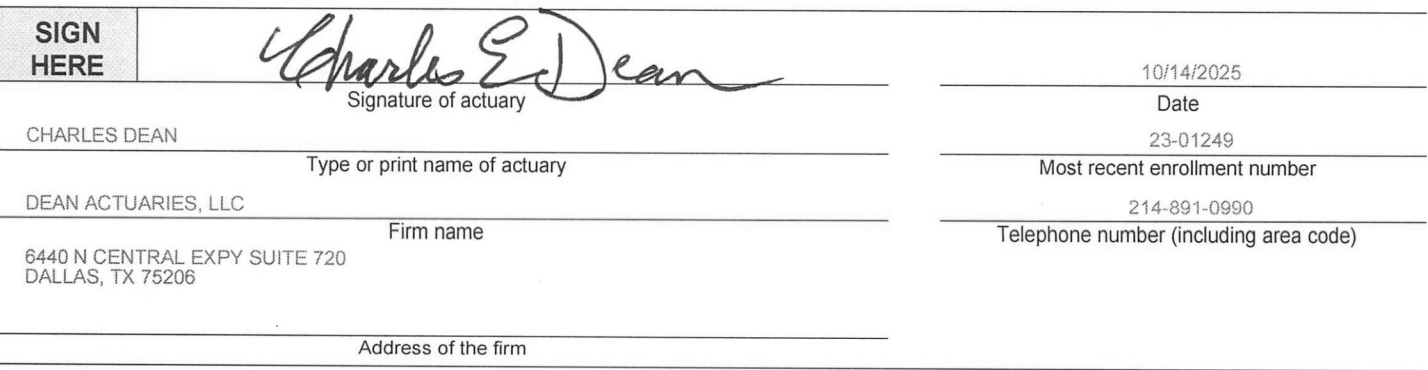 SIGN
HERE
Charles E Dean
Signature of actuary
10/14/2025
Date
CHARLES DEAN
Type or print name of actuary
23-01249
Most recent enrollment number
DEAN ACTUARIES, LLC
Firm name
214-891-0990
Telephone number (including area code)
6440 N CENTRAL EXPY SUITE 720
DALLAS, TX 75206
Address of the firm